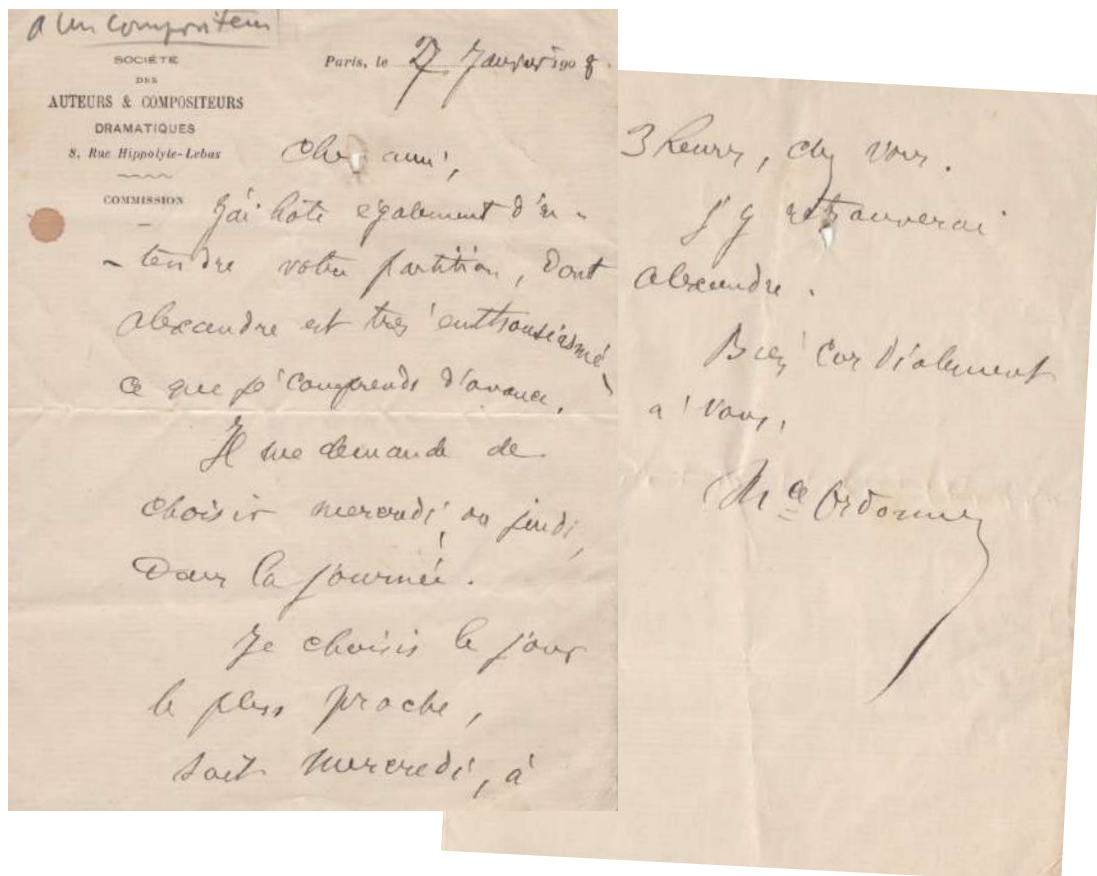 A un compositeur
SOCIÉTÉ
DES
AUTEURS & COMPOSITEURS
DRAMATIQUES
8, Rue Hippolyte-Lebas
COMMISSION
Paris, le 27 Janvier 1908.
Cher ami,
J'ai hâte également d'en-
-tendre votre partition, dont
Alexandre est très enthousiasmé,
ce que je comprends d'avance.
Il me demande de
choisir mercredi, ou jeudi,
Dans la journée.
Je choisis le jour
le plus proche,
soit mercredi, à
3 heures, chez vous.
J'y retrouverai
Alexandre.
Bien cordialement
à vous,
Mce Ordonneau